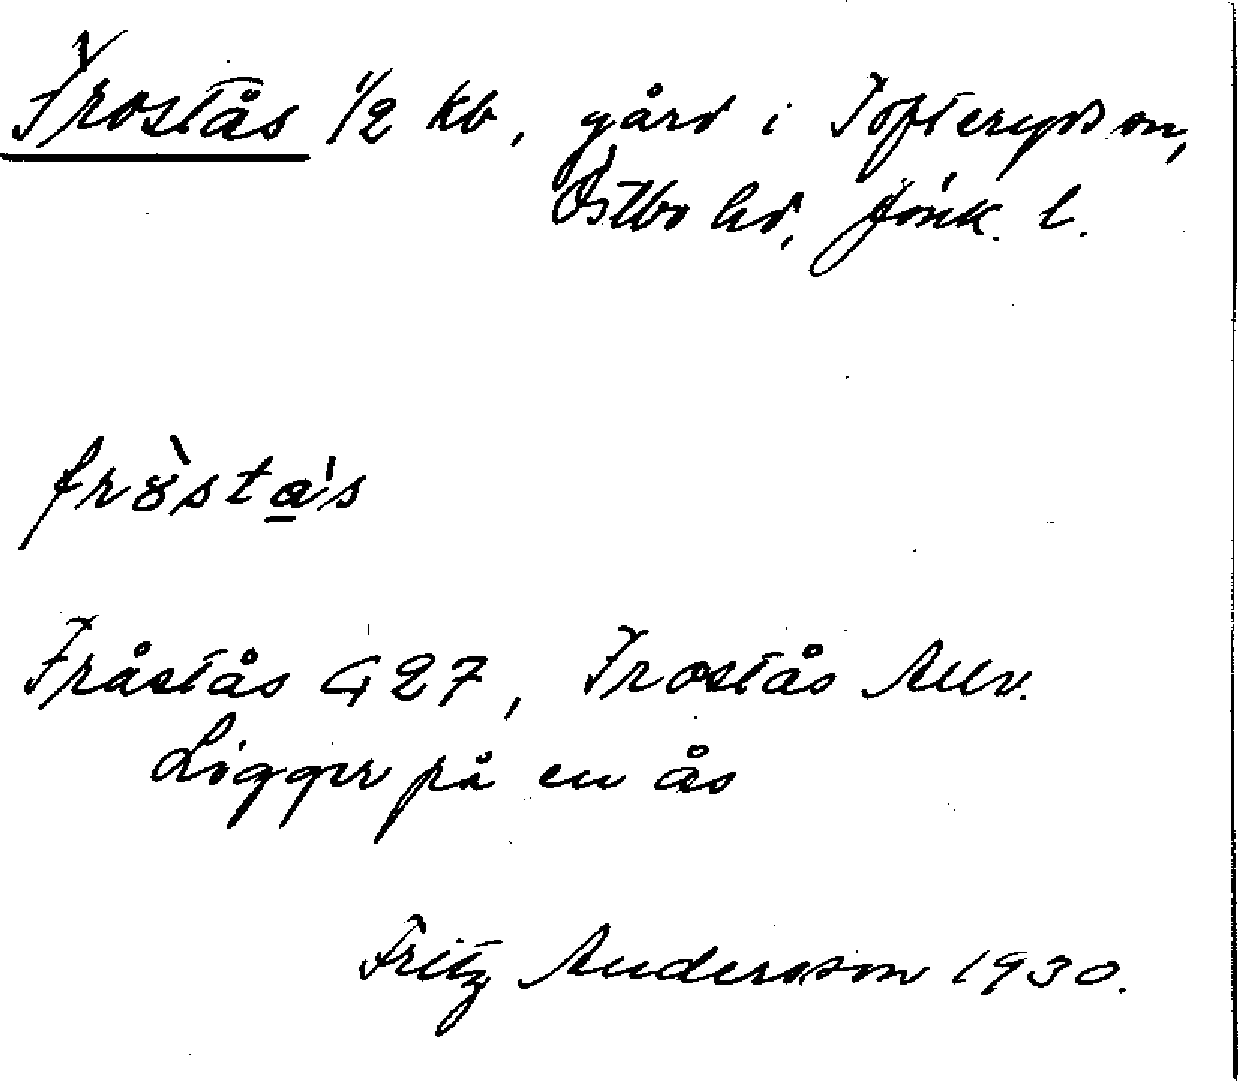 Frostås 1/2 kb, gård i Tofteryds sn,
Östbo hd, Jönk. l.
fròsta̲'s
Fråstås G 27, Frostås Allv.
Ligger på en ås
Fritz Andersson 1930.